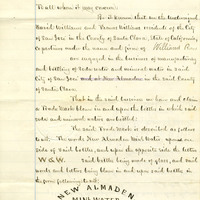 To all whom it may concern:
Be it known that we the undersigned
David Williams and Traver Williams residents of the City
of San Jose in the County of Santa Clara, State of California,
Copartners under the name and firm of Williams Bro.
are engaged in the business of manufacturing
and bottling of soda water and mineral water in said
City of San Jose and at New Almaden in the said County
of Santa Clara.
That in the said business we have and claim
a Trade Mark blown in and upon the bottles in which said
soda and mineral water are bottled.
The said Trade Mark is described as follows
to wit: The words New Almaden Mineral Water upon one
side of said bottles, and upon the opposite side the letters
W & W. said bottles being made of glass, and said
words and letters being blown in and upon said bottle in
the form following to wit:
NEW ALMADEN
MIN'L WATER